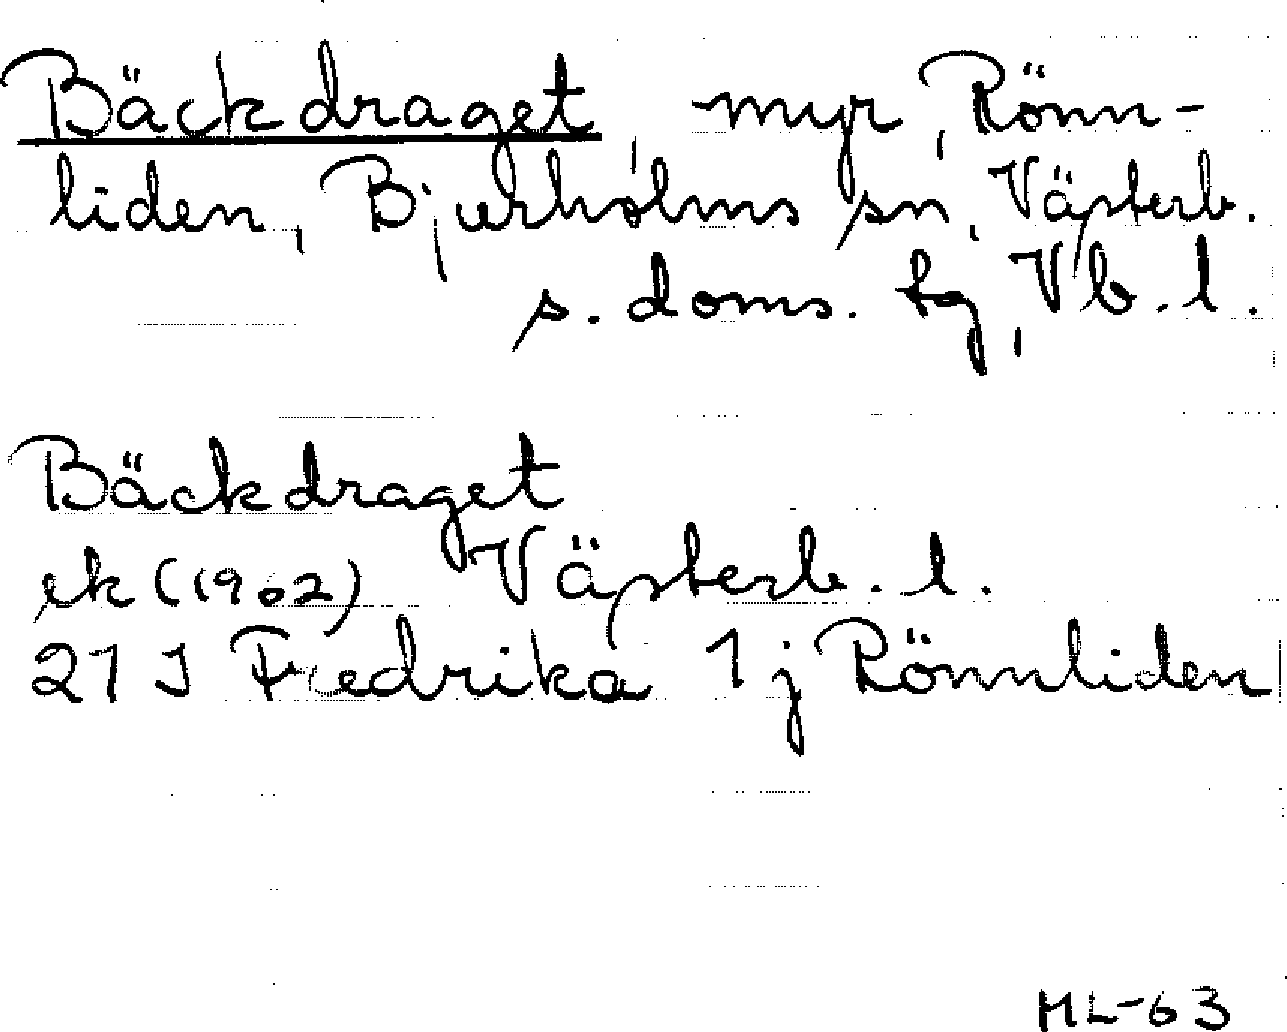 Bäckdraget, myr, Rönn-
liden, Bjurholms sn, Västerb.
s. doms. tg, Vb. l.
Bäckdraget
ek (1962) Västerb. l.
21 J Fredrika 1 j Rönnliden
ML-63